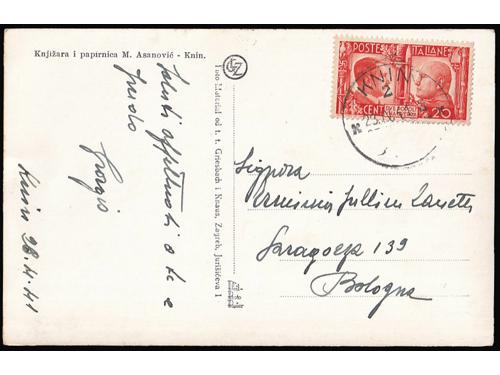 Knjižara i papirnica M. Asanović - Knin.
Saluti affettuosi a te e
Guido
Giorgio
Knin 28.4.41
Foto Material od t. t. Griesbach i Knaus, Zagreb, Jurišićeva 1
POSTE ITALIANE
CENT 20
KNIN
Signora
Zanetti
Saragozza 139
Bologna